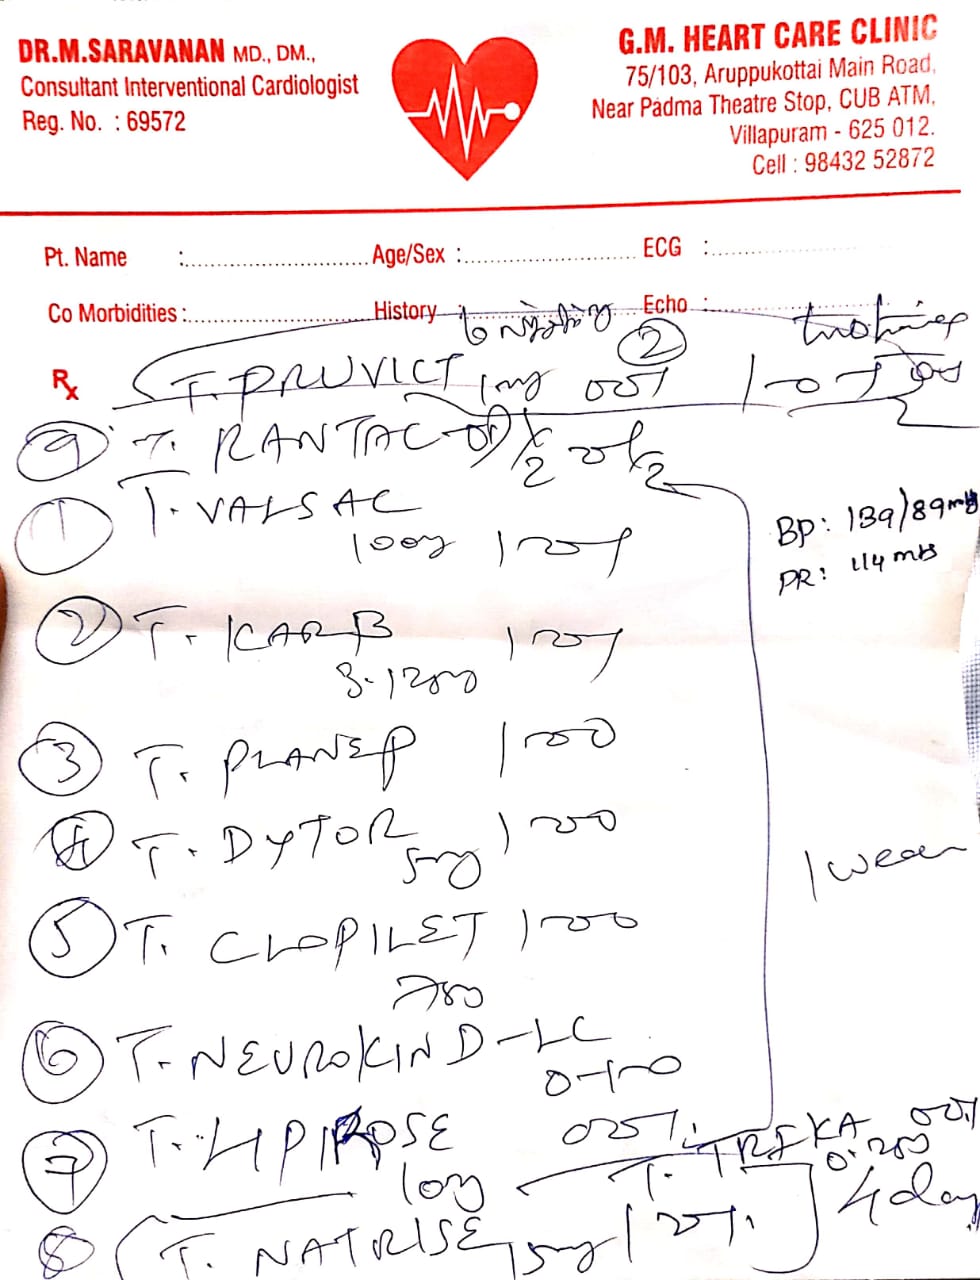 DR.M.SARAVANAN MD., DM.,
Consultant Interventional Cardiologist
Reg. No. : 69572
G.M. HEART CARE CLINIC
75/103, Aruppukottai Main Road,
Near Padma Theatre Stop, CUB ATM,
Villapuram - 625 012.
Cell : 98432 52872
Pt. Name : Age/Sex : ECG :
Co Morbidities : History Echo :
Rx T. PRUVICT 1mg 001 (2)
(9) T. RANTAC-D 1/2 0 1/2
(1) T. VALSAC
100mg 1-0-1
BP: 139/89
PR: 114
(2) T. KARB 1-0-1
3.125mg
(3) T. PLANEP 1-0-0
(4) T. DYTOR 5mg 1-0-0
1 week
(5) T. CLOPILET 1-0-0
75mg
(6) T. NEUROKIND-LC
0-1-0
(7) T. LIPIROSE 001
10mg
T. 0.25mg 001
4 day
(8) T. NATRISE 15mg 1-0-1